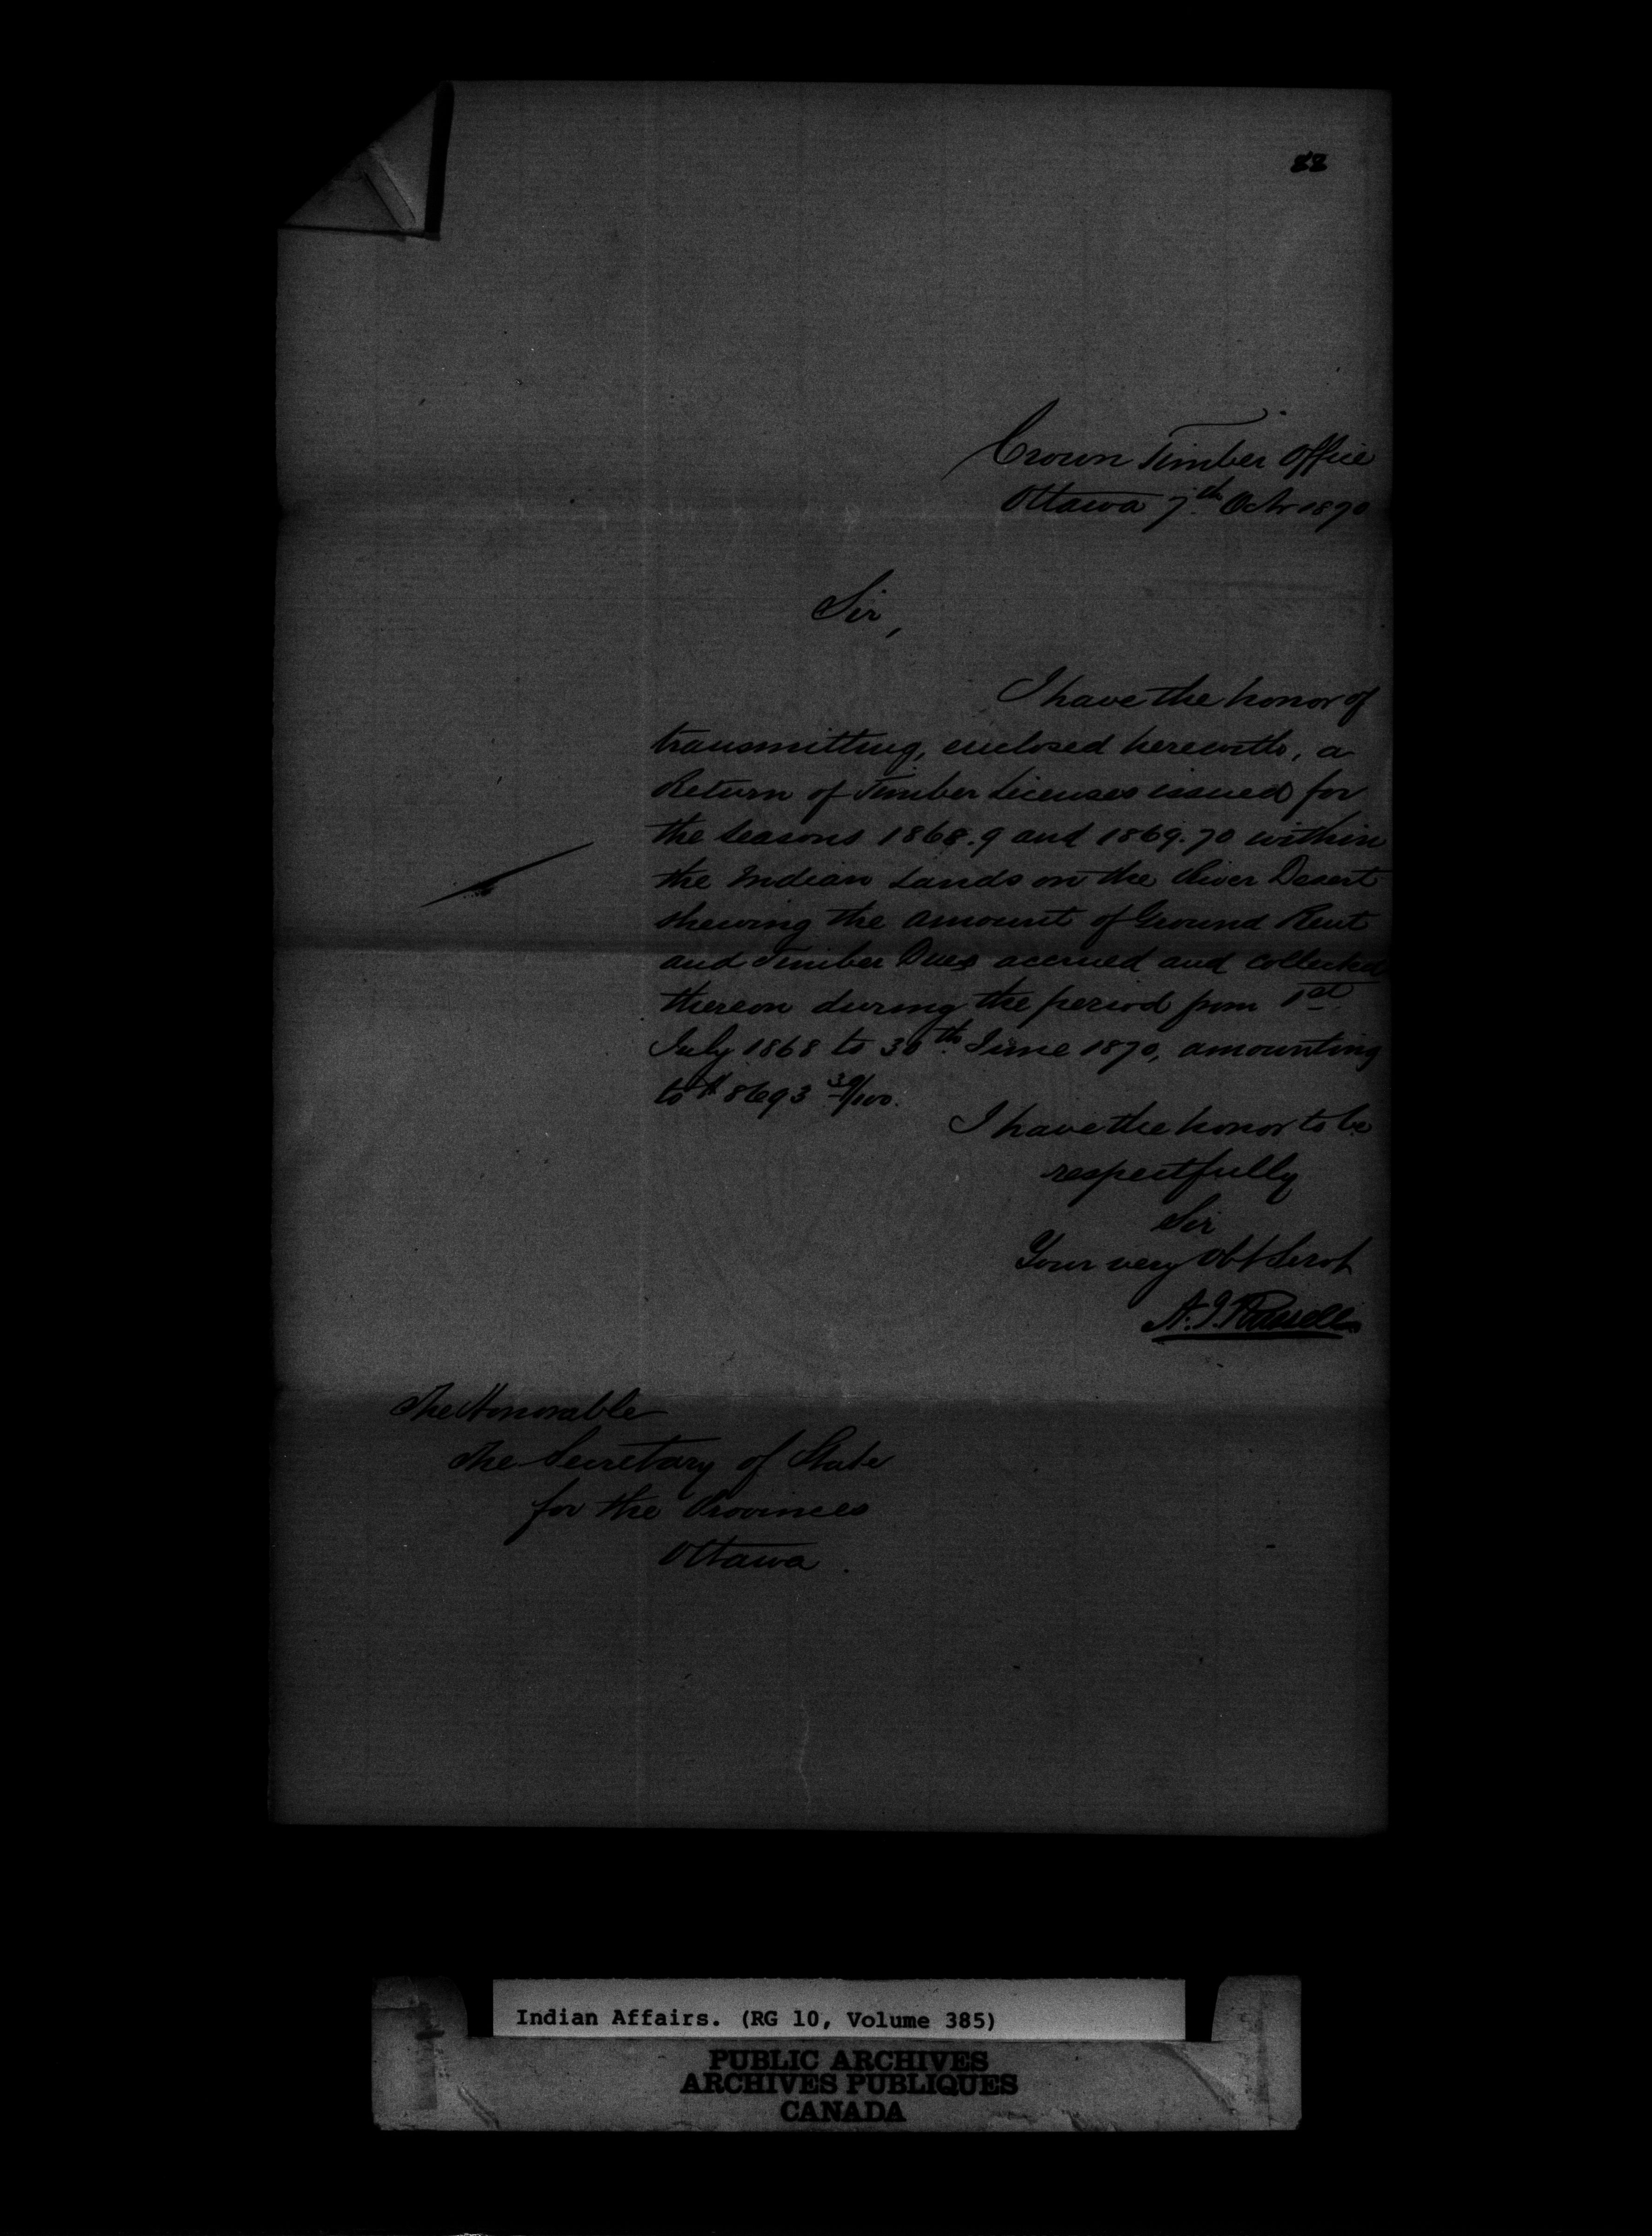 22
Crown Timber Office
Ottawa 7th Octr 1870
Sir,
I have the honor of
transmitting, enclosed herewith, a
Return of Timber Licenses issued for
the seasons 1868.9 and 1869.70 within
the Indian Lands on the River Desert
shewing the amount of Ground Rent
and Timber Dues accrued and collected
thereon during the period from 1st
July 1868 to 30th June 1870, amounting
to $8693 30/100.
I have the honor to be
respectfully
Sir
Your very Obt Servt
A. J. Russell
The Honorable
The Secretary of State
for the Provinces
Ottawa.
Indian Affairs. (RG 10, Volume 385)
PUBLIC ARCHIVES
ARCHIVES PUBLIQUES
CANADA